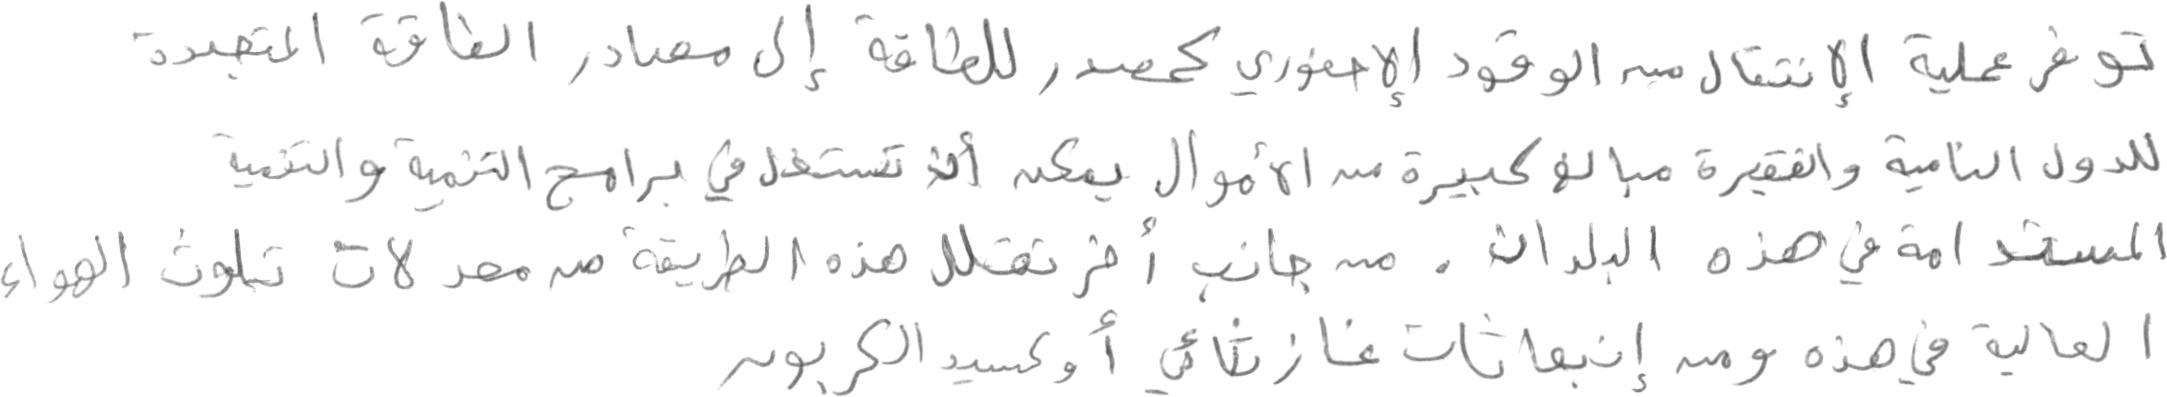 توفر عملية الإنتقال من الوقود الإحفوري كمصدر للطاقة إلى مصادر الطاقة المتجددة
للدول النامية والفقيرة مبالغ كبيرة من الأموال يمكن أن تستغل في برامج التنمية والتنمية
المستدامة في هذه البلدان . من جانب أخر تقلل هذه الطريقة من معدلات تلوث الهواء
العالية في هذه ومن إنبعاثات غاز ثنائي أوكسيد الكربون